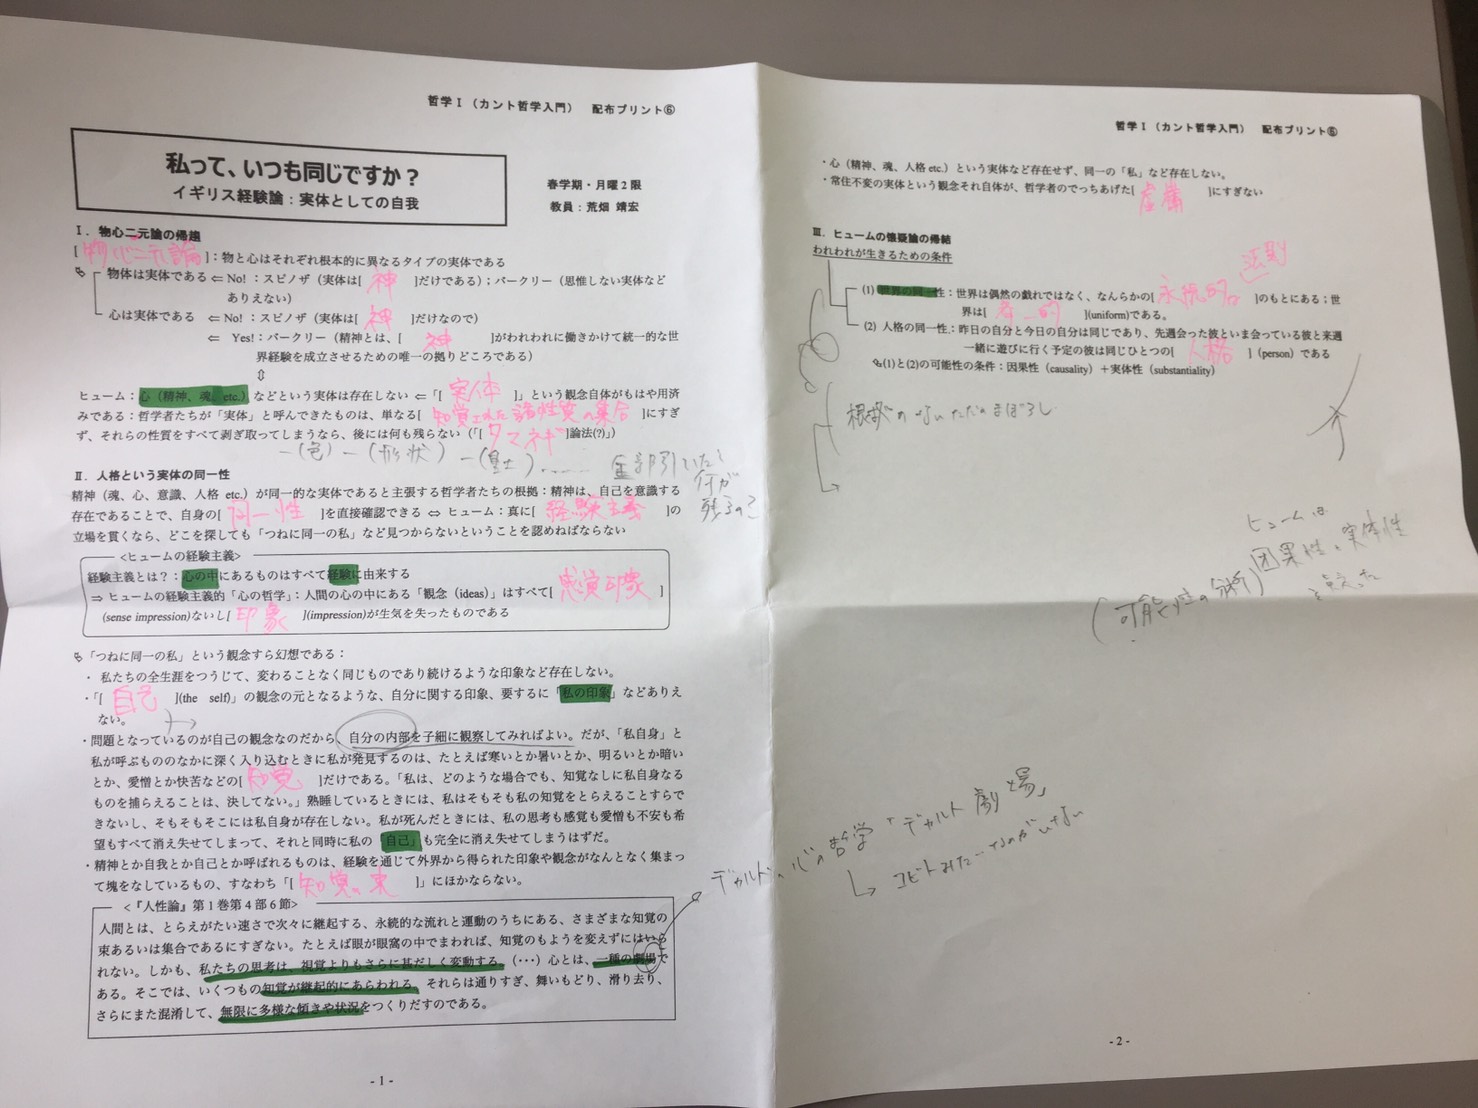 哲学Ⅰ（カント哲学入門）　配布プリント⑥
私って、いつも同じですか？
イギリス経験論：実体としての自我
春学期・月曜２限
教員：荒畑 靖宏
Ⅰ．物心二元論の帰趨
[ 物心二元論 ]：物と心はそれぞれ根本的に異なるタイプの実体である
物体は実体である ⇐ No! ：スピノザ（実体は[ 神 ]だけである）；バークリー（思惟しない実体など
ありえない）
心は実体である ⇐ No! ：スピノザ（実体は[ 神 ]だけなので）
⇐ Yes!：バークリー（精神とは、[ 神 ]がわれわれに働きかけて統一的な世
界経験を成立させるための唯一の拠りどころである）
⇕
ヒューム：心（精神、魂、etc.）などという実体は存在しない ⇐「[ 実体 ]」という観念自体がもはや用済
みである：哲学者たちが「実体」と呼んできたものは、単なる[ 知覚された諸性質の集合 ]にすぎ
ず、それらの性質をすべて剥ぎ取ってしまうなら、後には何も残らない（「[ タマネギ ]論法(?)」）
－(色) －(形状) －(
全部引いていたら
何が
残るのさ
Ⅱ．人格という実体の同一性
精神（魂、心、意識、人格 etc.）が同一的な実体であると主張する哲学者たちの根拠：精神は、自己を意識する
存在であることで、自身の[ 同一性 ]を直接確認できる ⇔ ヒューム：真に[ 経験主義 ]の
立場を貫くなら、どこを探しても「つねに同一の私」など見つからないということを認めねばならない
<ヒュームの経験主義>
経験主義とは？：心の中にあるものはすべて経験に由来する
⇒ ヒュームの経験主義的「心の哲学」：人間の心の中にある「観念（ideas）」はすべて[ 感覚印象 ]
(sense impression)ないし[ 印象 ](impression)が生気を失ったものである
「つねに同一の私」という観念すら幻想である：
・ 私たちの全生涯をつうじて、変わることなく同じものであり続けるような印象など存在しない。
・「[ 自己 ](the self)」の観念の元となるような、自分に関する印象、要するに「私の印象」などありえ
ない。
・問題となっているのが自己の観念なのだから、自分の内部を子細に観察してみればよい。だが、「私自身」と
私が呼ぶもののなかに深く入り込むときに私が発見するのは、たとえば寒いとか暑いとか、明るいとか暗い
とか、愛憎とか快苦などの[ 知覚 ]だけである。「私は、どのような場合でも、知覚なしに私自身なる
ものを捕らえることは、決してない。」熟睡しているときには、私はそもそも私の知覚をとらえることすらで
きないし、そもそもそこには私自身が存在しない。私が死んだときには、私の思考も感覚も愛憎も不安も希
望もすべて消え失せてしまって、それと同時に私の「自己」も完全に消え失せてしまうはずだ。
・精神とか自我とか自己とか呼ばれるものは、経験を通じて外界から得られた印象や観念がなんとなく集まっ
て塊をなしているもの、すなわち「[ 知覚の束 ]」にほかならない。
<『人性論』第１巻第４部６節>
人間とは、とらえがたい速さで次々に継起する、永続的な流れと運動のうちにある、さまざまな知覚の
束あるいは集合であるにすぎない。たとえば眼が眼窩の中でまわれば、知覚のもようを変えずにはいら
れない。しかも、私たちの思考は、視覚よりもさらに甚だしく変動する。（･･･）心とは、一種の劇場で
ある。そこでは、いくつもの知覚が継起的にあらわれる。それらは通りすぎ、舞いもどり、滑り去り、
さらにまた混淆して、無限に多様な傾きや状況をつくりだすのである。
- 1 -
哲学Ⅰ（カント哲学入門）　配布プリント⑥
・心（精神、魂、人格 etc.）という実体など存在せず、同一の「私」など存在しない。
・常住不変の実体という観念それ自体が、哲学者のでっちあげた[ 虚構 ]にすぎない
Ⅲ．ヒュームの懐疑論の帰結
われわれが生きるための条件
法則
(1) 世界の同一性：世界は偶然の戯れではなく、なんらかの[ 永続的 ]のもとにある；世
界は[ 斉一的 ](uniform)である。
(2) 人格の同一性：昨日の自分と今日の自分は同じであり、先週会った彼といま会っている彼と来週
一緒に遊びに行く予定の彼は同じひとつの[ 人格 ]（person）である
(1)と(2)の可能性の条件：因果性（causality）＋実体性（substantiality）
根拠のないただのまぼろし
ヒュームは
因果性、実体性
(可能性の分析)
デカルトの心の哲学「デカルト劇場」
コビトみたいなのがいない
- 2 -